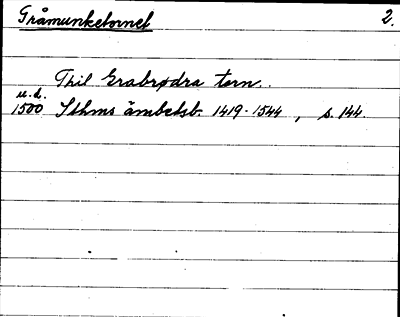 Gråmunketornet 2.
Thil Grabrødra torn.
u.d.
1500 Sthms ämbetsb. 1419-1544, s. 144.